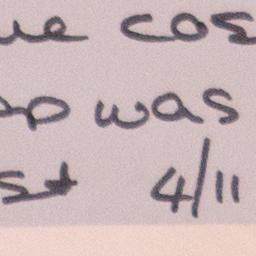 ue cos
op was
st 4/11